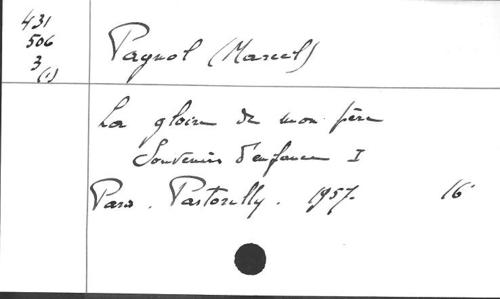 431
506
3
(1)
Pagnol (Marcel)
La gloire de mon père
Souvenirs d'enfance I
Paris. Pastorelly. 1957. 16°